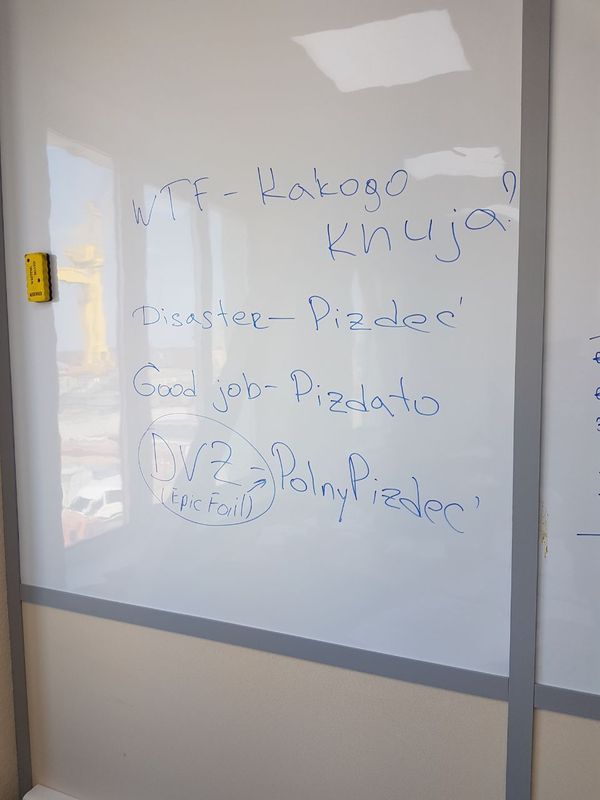 WTF - Kakogo
Khuja?
Disaster - Pizdec'
Good job - Pizdato
DVZ - PolnyPizdec'
(Epic Fail)